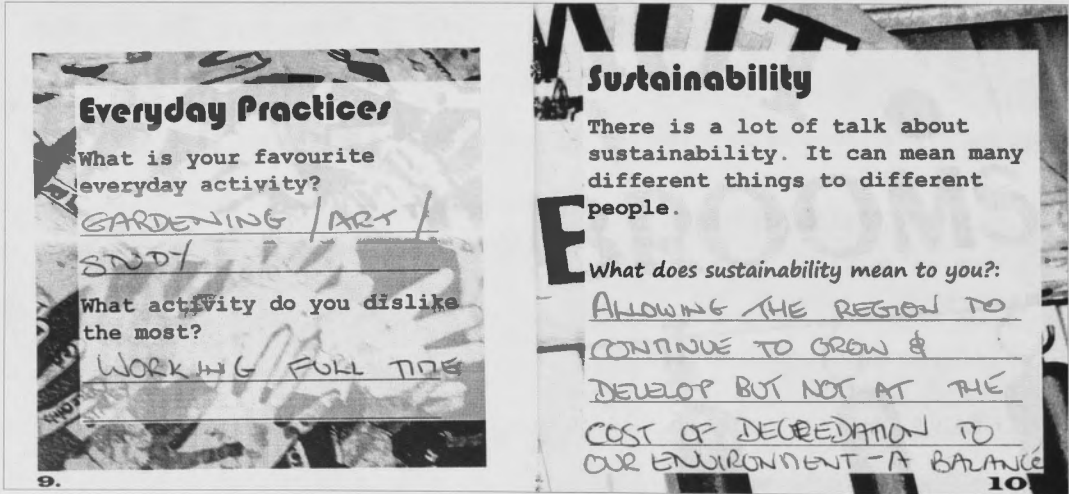 Everyday Practices
What is your favourite
everyday activity?
GARDENING / ART /
STUDY
What activity do you dislike
the most?
WORKING FULL TIME
9.
Sustainability
There is a lot of talk about
sustainability. It can mean many
different things to different
people.
What does sustainability mean to you?:
ALLOWING THE REGION TO
CONTINUE TO GROW &
DEVELOP BUT NOT AT THE
COST OF DEGREDATION TO
OUR ENVIRONMENT - A BALANCE
10